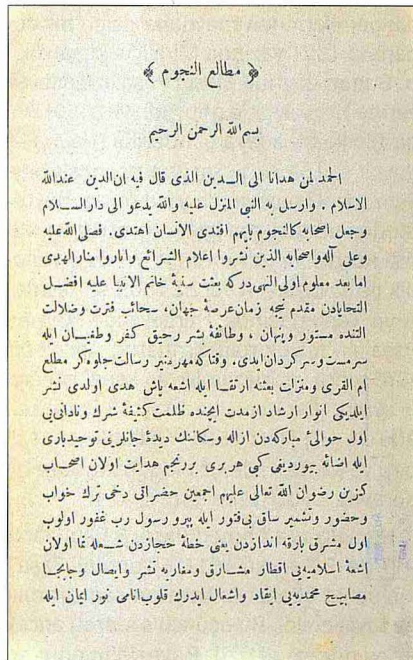 ﴿ مطالع النجوم ﴾
بسم الله الرحمن الرحيم
الحمد لمن هدانا الى الـــدين الذى قال فيه ان الدين عندالله
الاسلام . وارسل به النبى المنزل عليه والله يدعو الى دارالســـلام
وجعل اصحابه كالنجوم بايهم اقتدى الانسان اهتدى. فصلى الله عليه
وعلى آله واصحابه الذين نشروا اعلام الشرائع واناروا منارالهدى
اما بعد معلوم اولى النهى دركه بعثت سنيهٔ خاتم الانبيا عليه افضـــل
التحايادن مقدم نيجه زمان عرصهٔ جهان، سحائب فترت وضلالت
التنده مستور وپنهان ، وطائفهٔ بشر رحيق كفر وطغيـــان ايله
سرمست وسركردان ايدى. وقتاكه مهر منير رسالت جلوه كر مطلع
ام القرى ومنزلت بعثته ارتقـــا ايله اشعه پاش هدى اولدى نشر
ايلديكى انوار ارشاد از مدت ايچنده ظلمت كثيفهٔ شرك ونادانى‌يى
اول حوالئ مباركه‌دن ازاله وسكاننك ديدهٔ جانلرينى توحيدبارى
ايله اضائه بيورديغى كبى هربرى بررنجم هدايت اولان اصحـــاب
كزين رضوان الله تعالى عليهم اجمعين حضراتى دخى ترك خواب
وحضور وتشمير ساق بى‌فتور ايله پيرو رسول رب غفور اولوب
اول مشرق بارقه اندازدن يعنى خطهٔ حجازدن شـــعله نما اولان
اشعهٔ اسلاميه‌يى اقطار مشـــارق ومغاربه نشر وايصال وجابجـــا
مصابيح محمديه‌يى ايقاد واشعال ايدرك قلوب انامى نور ايمان ايله